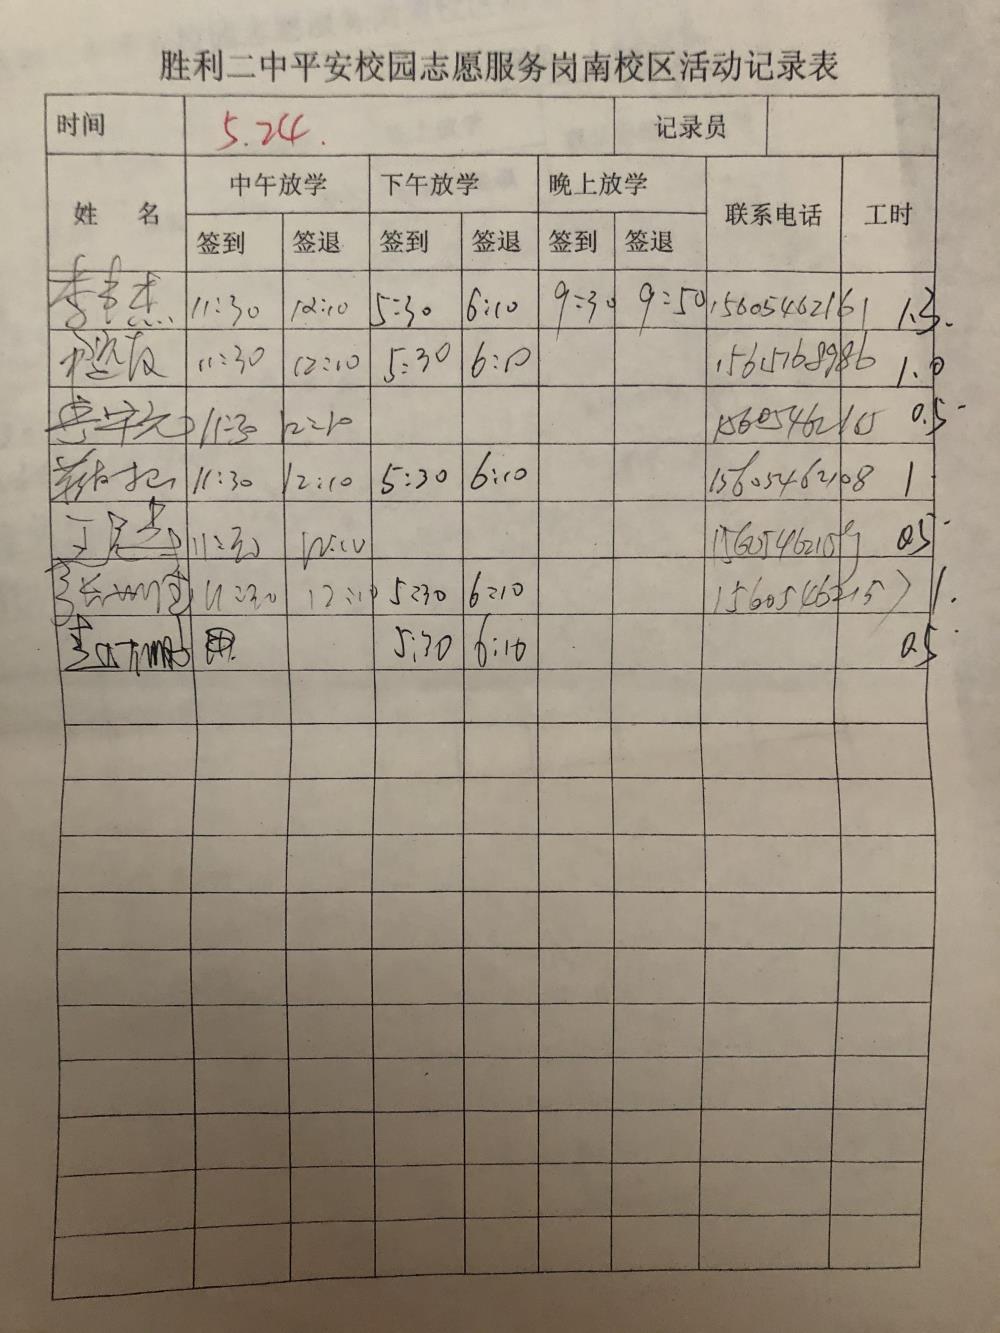 胜利二中平安校园志愿服务岗南校区活动记录表
时间 5.24. 记录员
姓 名 中午放学 下午放学 晚上放学 联系电话 工时
签到 签退 签到 签退 签到 签退
11:30 12:10 5:30 6:10 9:30 9:50 15605462161 1.3.
11:30 12:10 5:30 6:10 15615768986 1.0
11:30 12:10 15605462165 0.5
11:30 12:10 5:30 6:10 15605462108 1
11:30 12:10 0.5
11:30 12:10 5:30 6:10 15605462157 1.
5:30 6:10 0.5